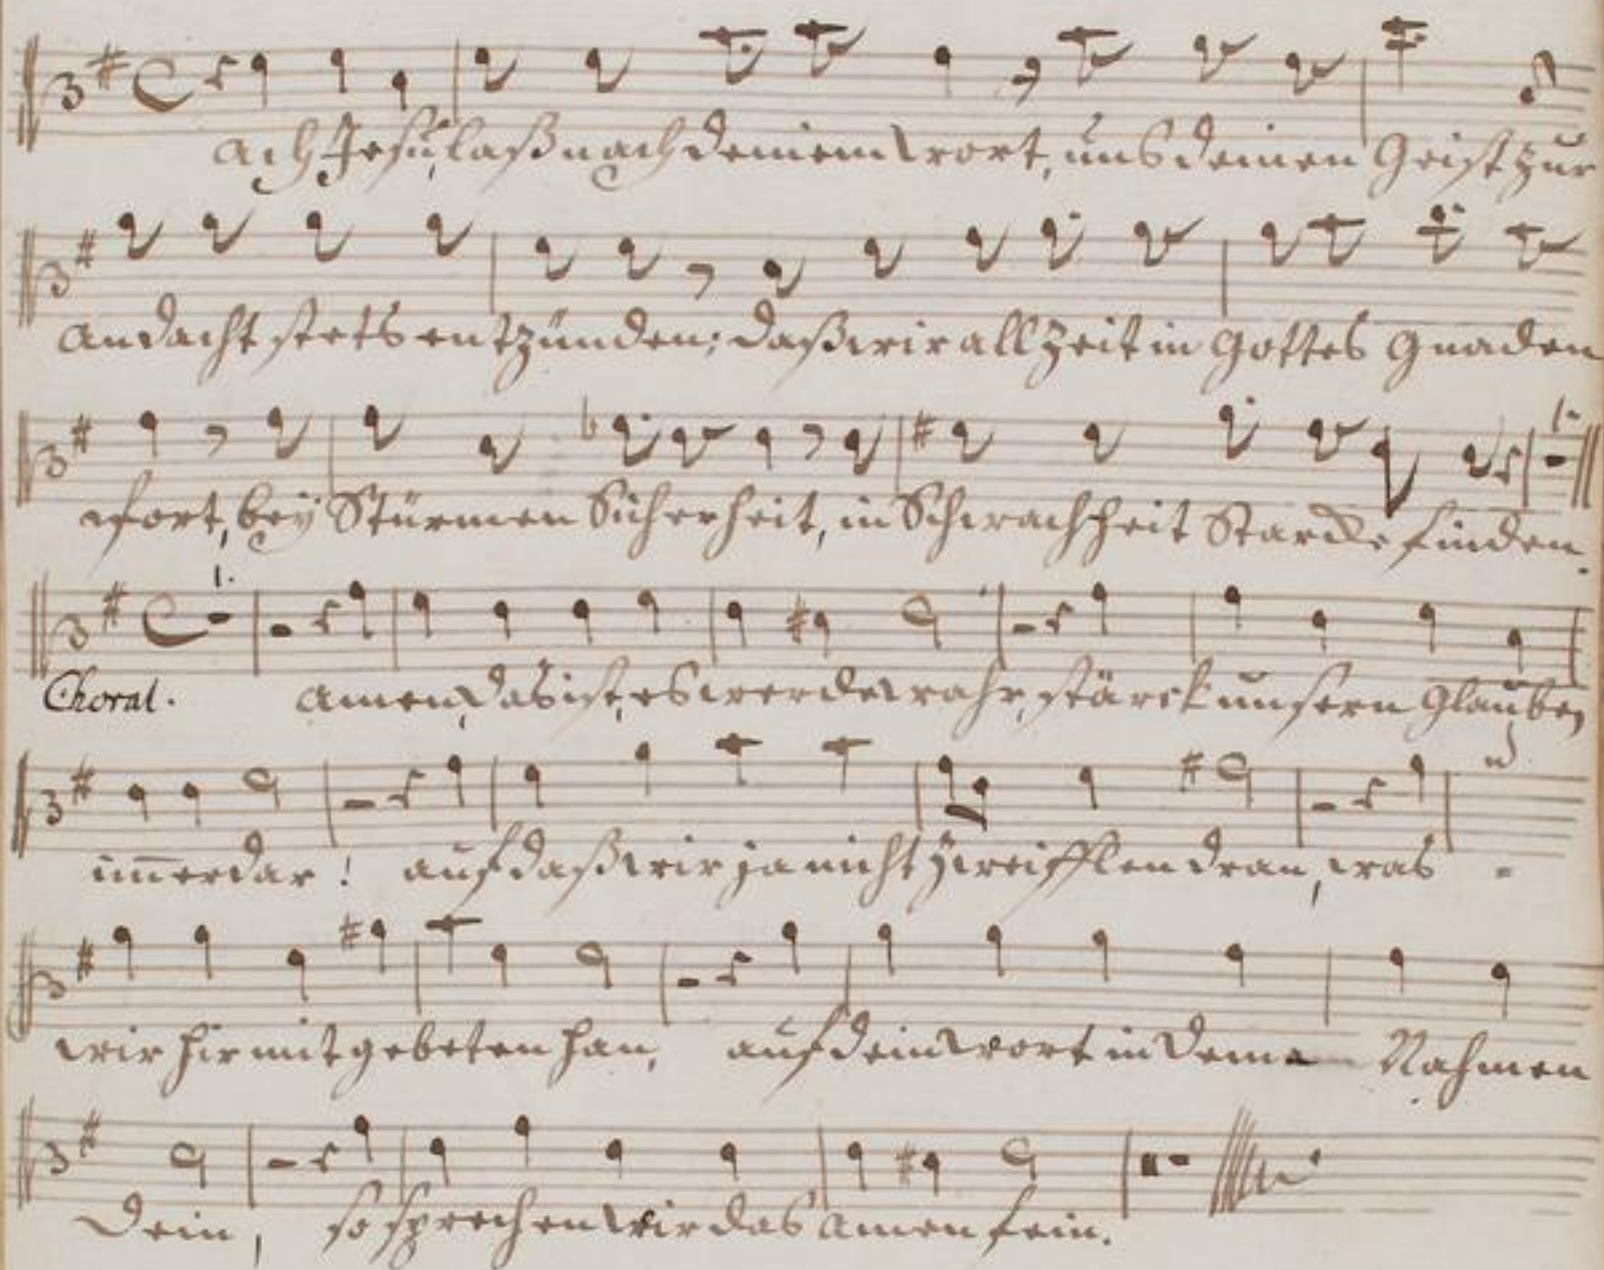 Ach Jesu, laß nach deinem wort, uns deinen Geist zur
Andacht stets entzünden; daß wir allzeit in Gottes Gnaden
fort, bey Stürmen Sicherheit, in Schwachheit Starcke finden.
Choral. Amen, das ist, es werde wahr, stärck unsern Glauben
im̄erdar! auf daß wir ja nicht zweifflen dran, was
wir hir mit gebeten han, auf dein wort in deine Nahmen
dein, so sprechen wir das Amen fein.